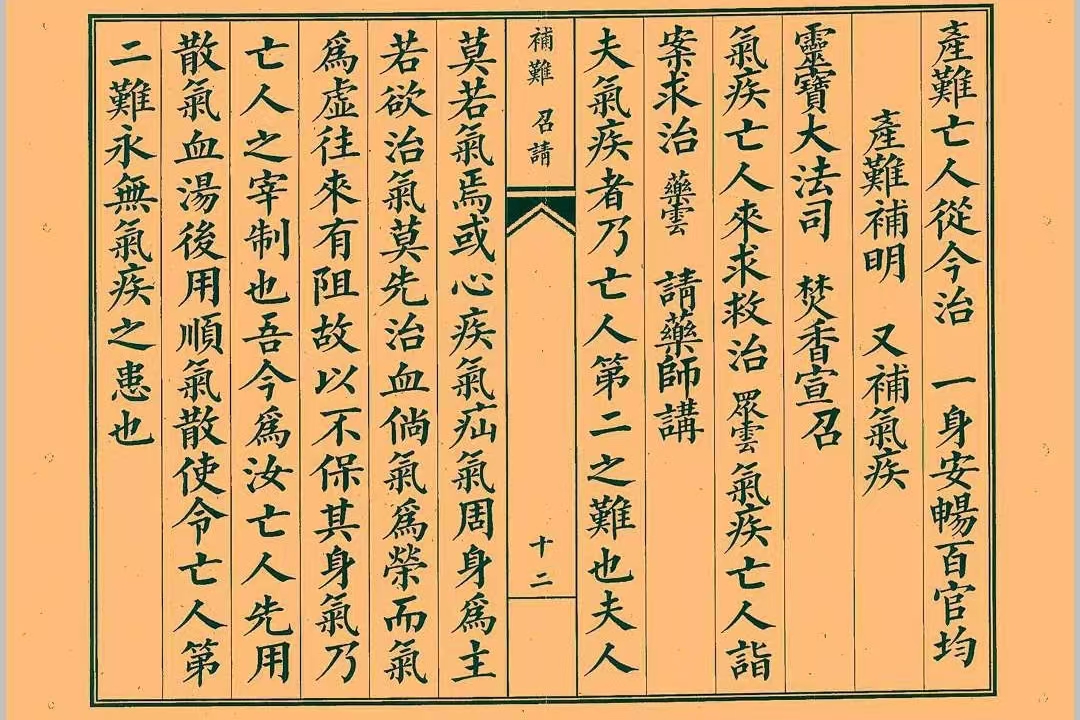 產難亡人從今治　一身安暢百官均
產難補明　又補氣疾
靈寶大法司　焚香宣召
氣疾亡人來求救治　眾雲　氣疾亡人詣
案求治　藥雲　請藥師講
夫氣疾者乃亡人第二之難也夫人
補難　召請　十二
莫若氣焉或心疾氣疝氣周身爲主
若欲治氣莫先治血倘氣爲榮而氣
爲虛往來有阻故以不保其身氣乃
亡人之宰制也吾今爲汝亡人先用
散氣血湯後用順氣散使令亡人第
二難永無氣疾之患也